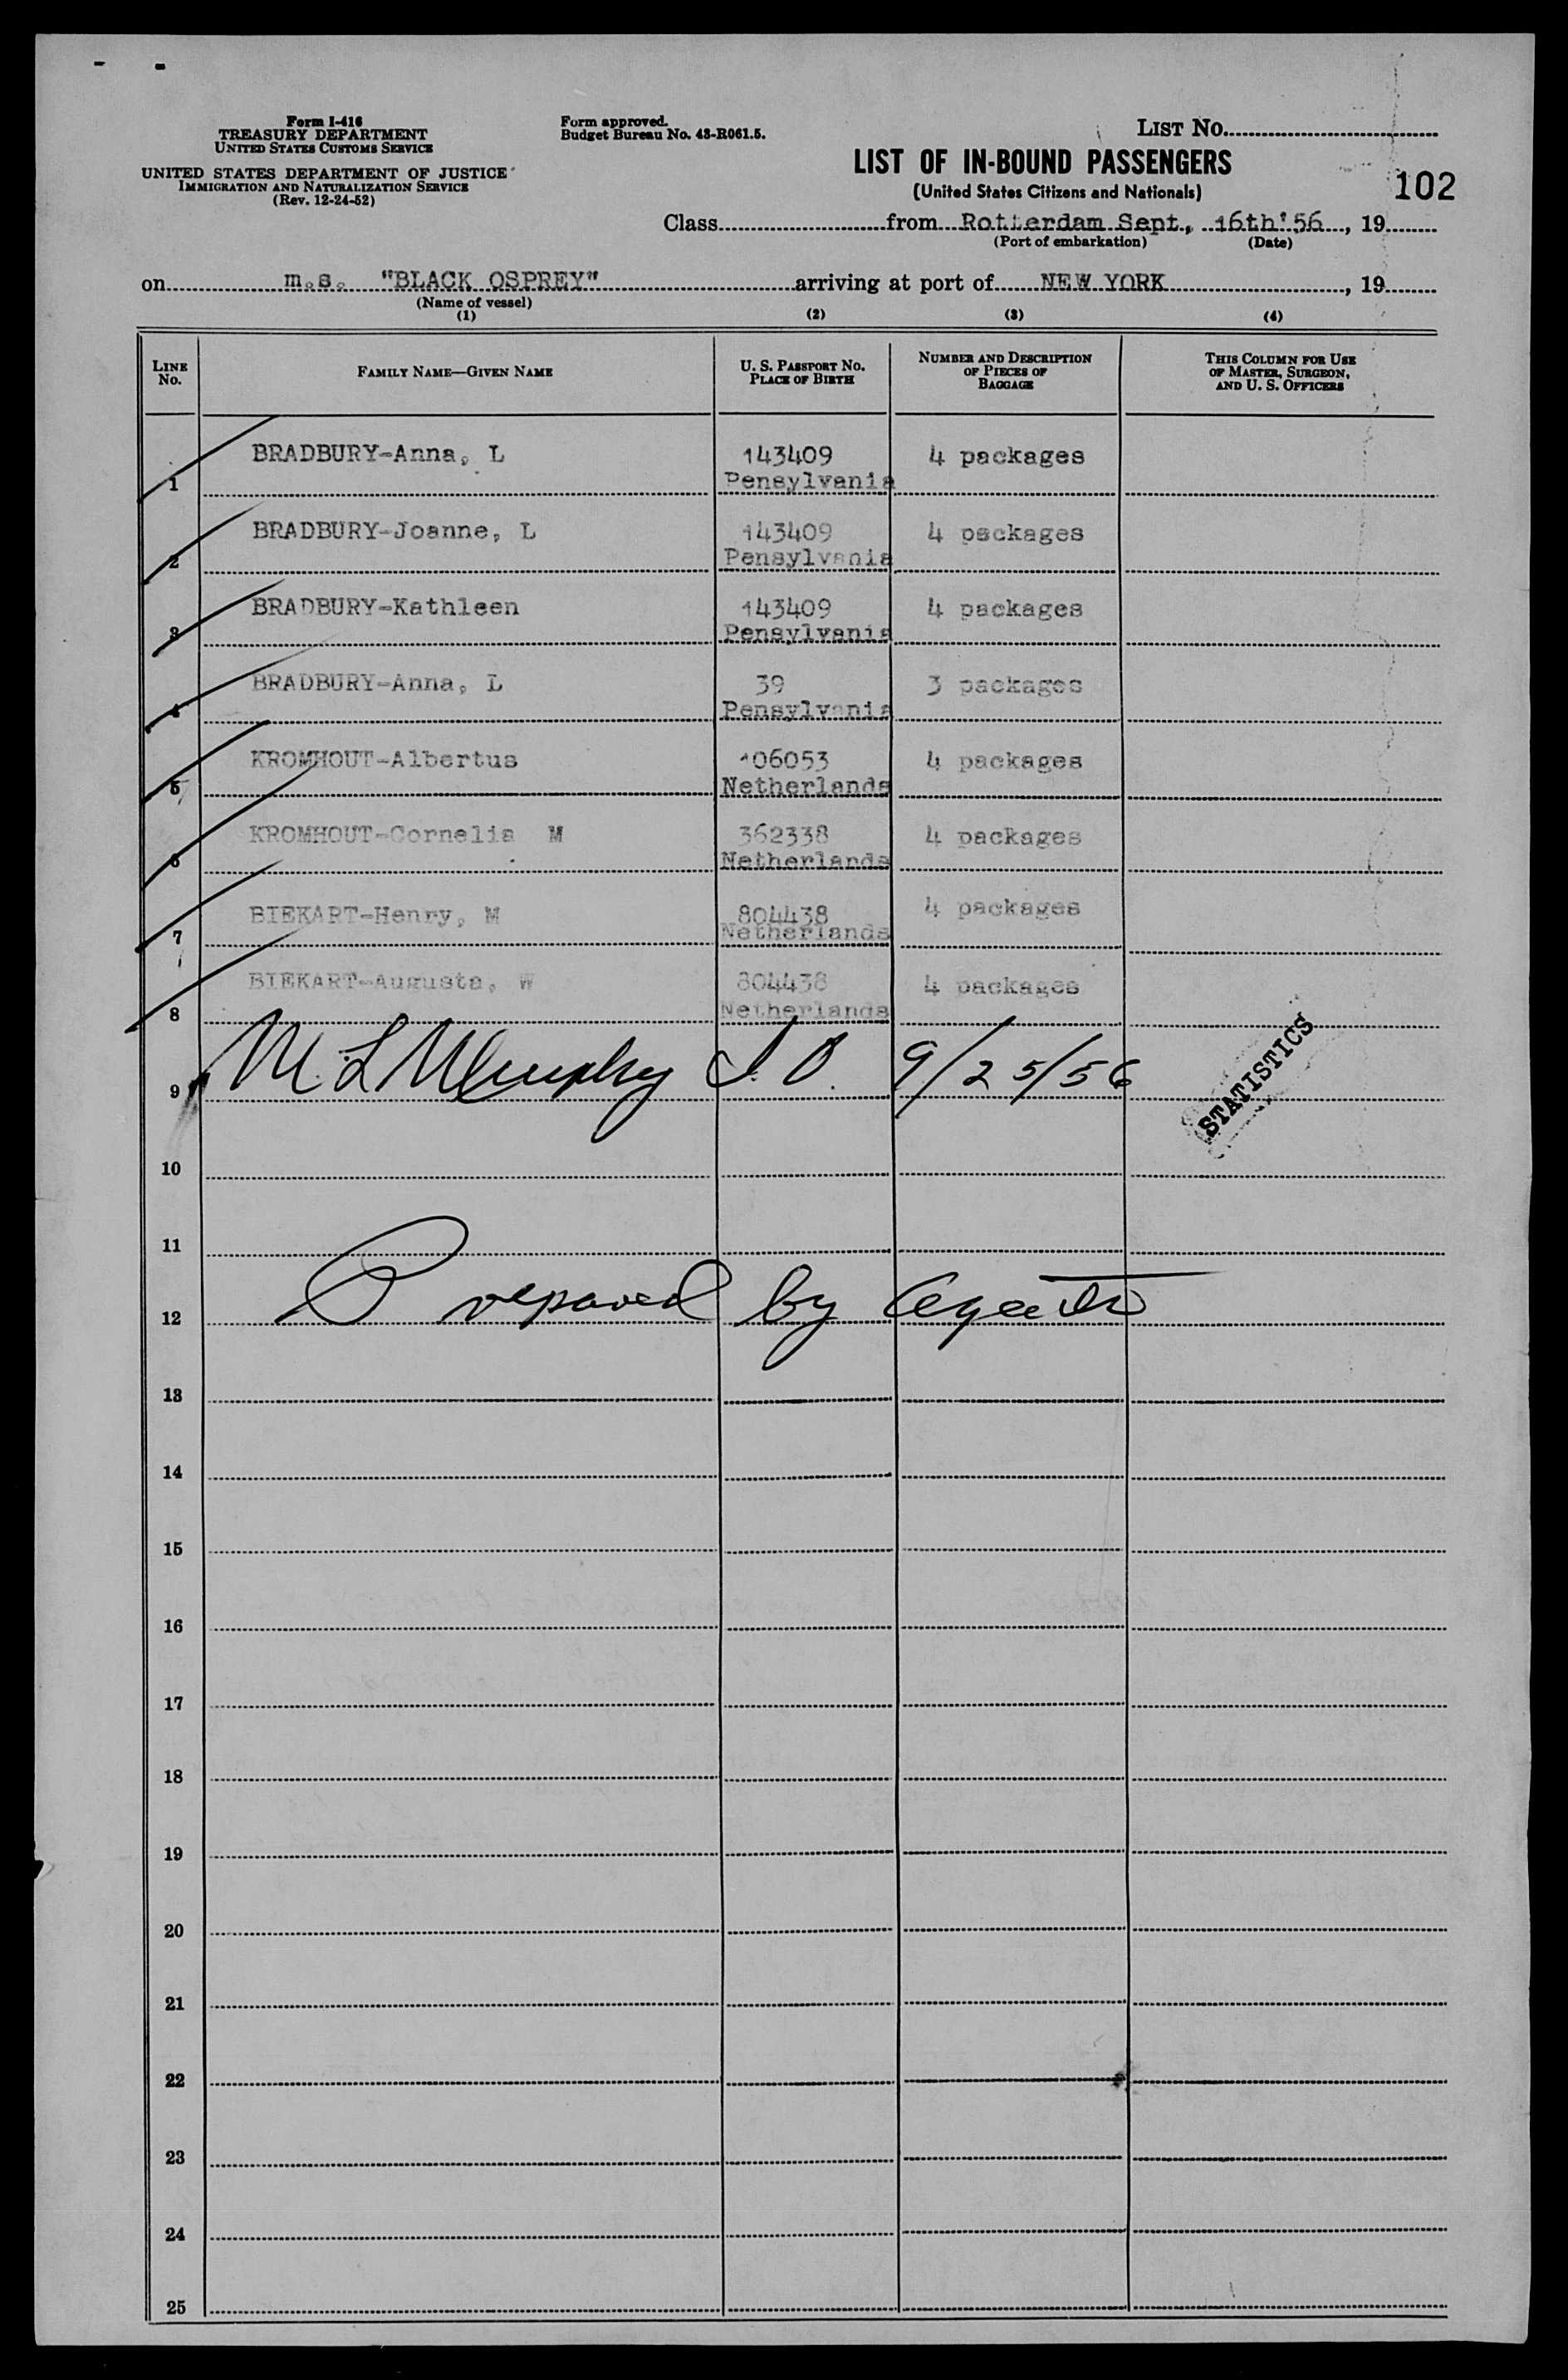 Form I-416
TREASURY DEPARTMENT
UNITED STATES CUSTOMS SERVICE
UNITED STATES DEPARTMENT OF JUSTICE
IMMIGRATION AND NATURALIZATION SERVICE
(Rev. 12-24-52)
Form approved.
Budget Bureau No. 43-R061.5.
LIST NO.
LIST OF IN-BOUND PASSENGERS
(United States Citizens and Nationals)
102
Class from Rotterdam Sept., 16th'56, 19
(Port of embarkation) (Date)
on m.s. "BLACK OSPREY" arriving at port of NEW YORK, 19
(Name of vessel)
(1) (2) (3) (4)
LINE NO. FAMILY NAME—GIVEN NAME U. S. PASSPORT NO. PLACE OF BIRTH NUMBER AND DESCRIPTION OF PIECES OF BAGGAGE THIS COLUMN FOR USE OF MASTER, SURGEON, AND U. S. OFFICERS
1 BRADBURY-Anna, L 143409 4 packages
Pensylvania
2 BRADBURY-Joanne, L 143409 4 packages
Pensylvania
3 BRADBURY-Kathleen 143409 4 packages
Pensylvania
4 BRADBURY-Anna, L 39 3 packages
Pensylvania
5 KROMHOUT-Albertus 106053 4 packages
Netherlands
6 KROMHOUT-Cornelia M 362338 4 packages
Netherlands
7 BIEKART-Henry, M 804438 4 packages
Netherlands
8 BIEKART-Augusta, W 804438 4 packages
Netherlands
9 M. L. Murphy I.O. 9/25/56
STATISTICS
10
11
12 Prepared by Agents
13
14
15
16
17
18
19
20
21
22
23
24
25